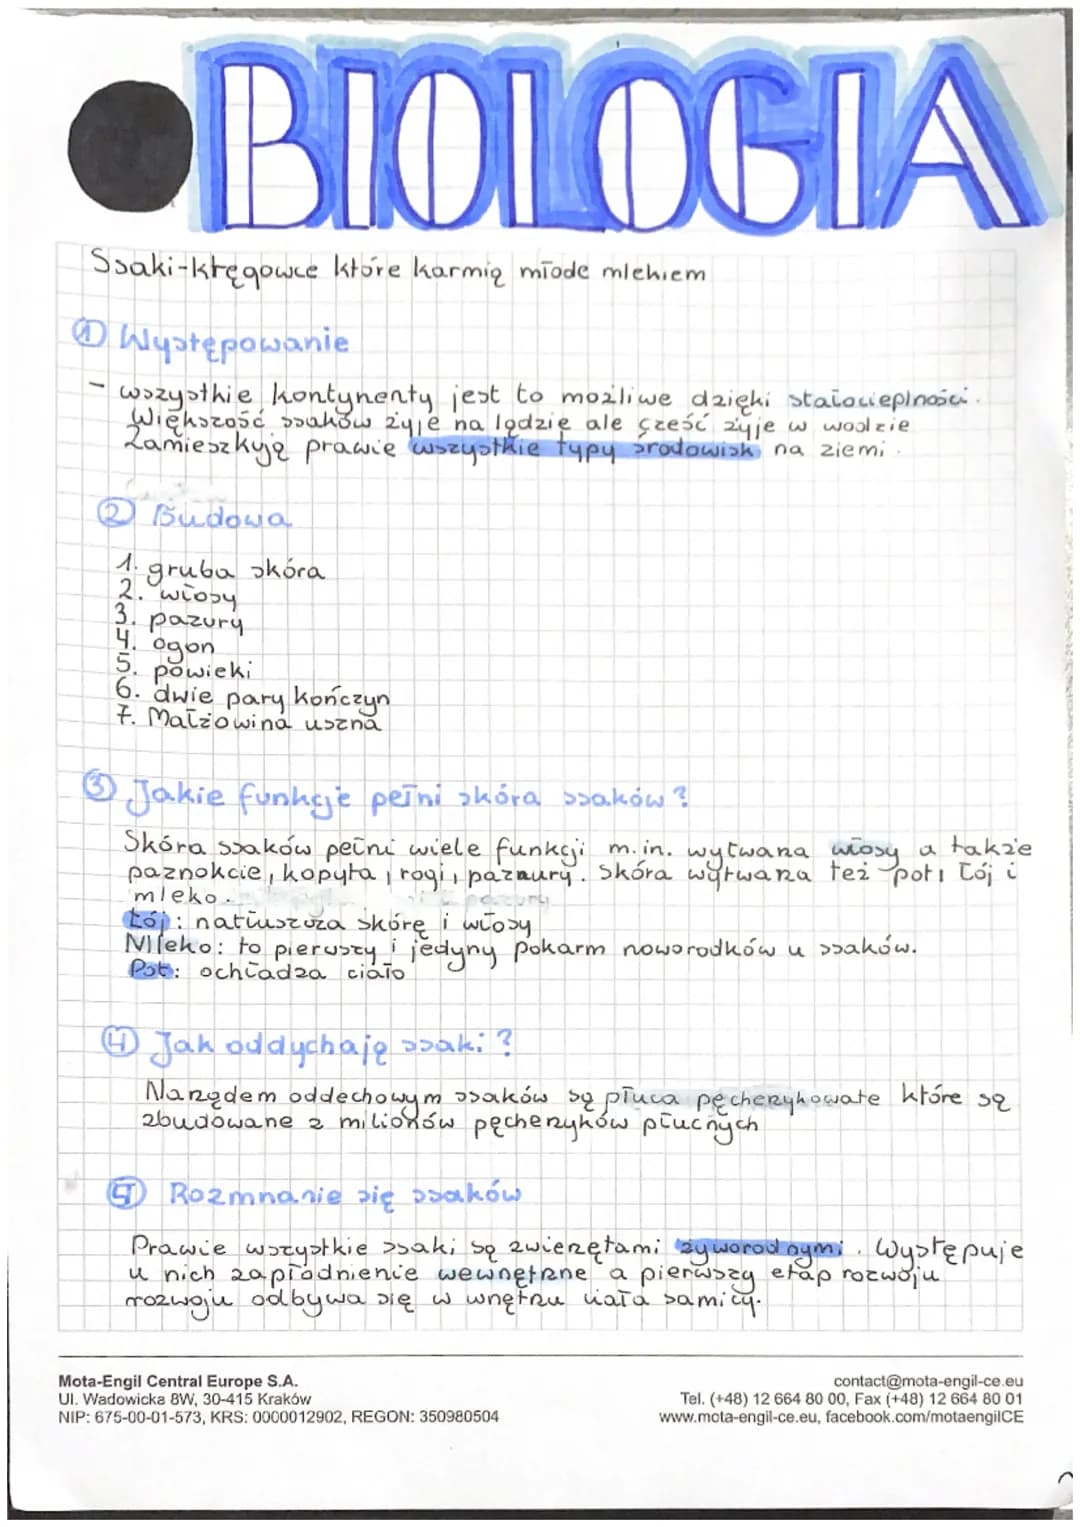 BIOLOGIA
Ssaki-kręgowce które karmią młode mlekiem
① Występowanie
- wszystkie kontynenty jest to możliwe dzięki stałocieplności.
Większość ssaków żyje na lądzie ale cześć żyje w wodzie
Zamieszkują prawie wszystkie typy środowisk na ziemi.
② Budowa
1. gruba skóra
2. włosy
3. pazury
4. ogon
5. powieki
6. dwie pary kończyn
7. Małżowina uszna
③ Jakie funkcje pełni skóra ssaków?
Skóra ssaków pełni wiele funkcji m.in. wytwarza włosy a także
paznokcie, kopyta, rogi, pazaury. Skóra wytwarza też pot, łój i
mleko.
Łój: natłuszcza skórę i włosy
Mleko: to pierwszy i jedyny pokarm noworodków u ssaków.
Pot: ochładza ciało
④ Jak oddychają ssaki?
Narządem oddechowym ssaków są płuca pęcherzykowate które są
zbudowane z milionów pęcherzyków płucnych
⑤ Rozmnanie się ssaków
Prawie wszystkie ssaki są zwierzętami żyworodnymi. Występuje
u nich zapłodnienie wewnętrzne a pierwszy etap rozwoju
rozwoju odbywa się w wnętrzu ciała samicy.
Mota-Engil Central Europe S.A.
Ul. Wadowicka 8W, 30-415 Kraków
NIP: 675-00-01-573, KRS: 0000012902, REGON: 350980504
contact@mota-engil-ce.eu
Tel. (+48) 12 664 80 00, Fax (+48) 12 664 80 01
www.mota-engil-ce.eu, facebook.com/motaengilCE